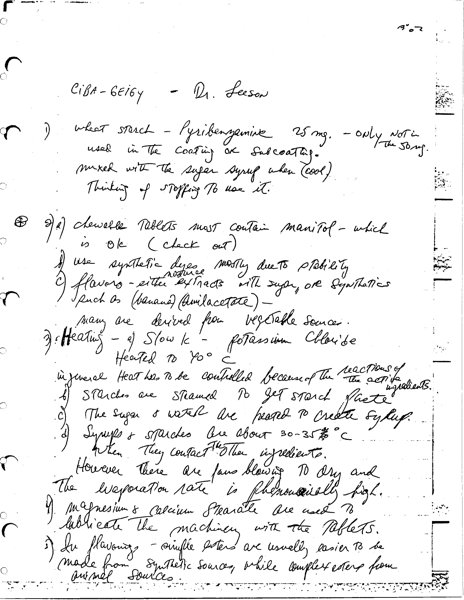 CIBA-GEIGY - Dr. Leeson
1) wheat starch - Pyribenzamine 25 mg. - only not in the 50 mg.
used in the coating or subcoating.
mixed with the sugar syrup when (cool)
Thinking of stopping to use it.
2) a) chewable Tablets most contain manitol - which
is ok (check out)
b) use synthetic dyes mostly due to stability
c) flavors - either natural extracts with sugar, or synthetics
such as (banana) (amilacetate) -
many are derived from vegetable sources.
3) Heating - a) Slow K - potassium Chloride
Heated to 40° C
in general Heat has to be controlled because of the reactions of the active ingredients.
b) Starches are steamed to get starch paste
c) The sugar & water are heated to create syrup.
d) Syrups & starches are about 30-35° C
when they contact the other ingredients.
However there are fans blowing to dry and
the evaporation rate is phenomenally high.
4) magnesium & calcium stearate are used to
lubricate the machinery with the Tablets.
5) In flavorings - simple esters are usually easier to be
made from synthetic sources, while complex esters from
animal sources.